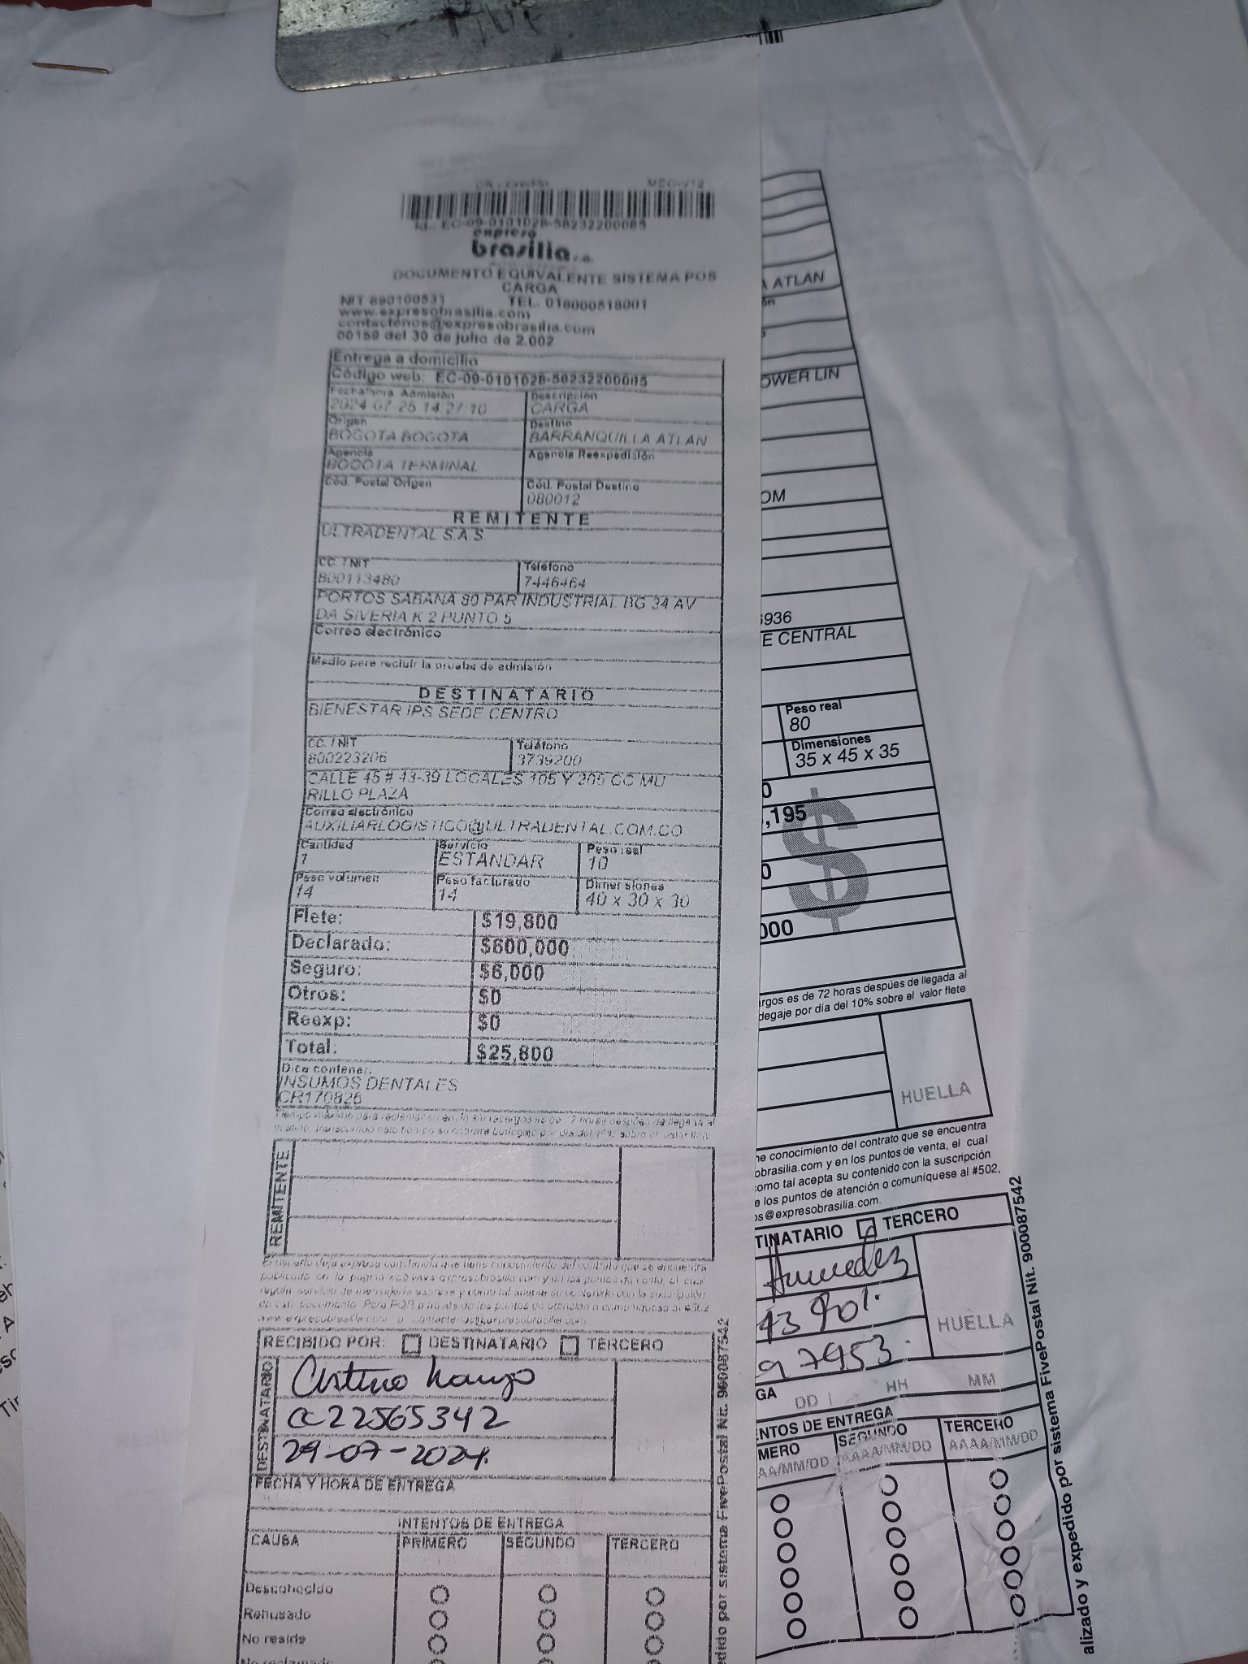 Id.: EC-09-0101028-58232200085
expreso
brasilia s.a.
DOCUMENTO EQUIVALENTE SISTEMA POS
CARGA
NIT 890100531 TEL. 018000518001
www.expresobrasilia.com
contactenos@expresobrasilia.com
00159 del 30 de julio de 2.002
Entrega a domicilio
Código web: EC-09-0101028-58232200085
Fecha/hora Admisión Descripción
2024-07-25 14:27:10 CARGA
Origen Destino
BOGOTA BOGOTA BARRANQUILLA ATLAN
Agencia Agencia Reexpedición
BOGOTA TERMINAL
Cód. Postal Origen Cód. Postal Destino
080012
REMITENTE
ULTRADENTAL S.A.S
CC. / NIT Teléfono
800113480 7446464
PORTOS SABANA 80 PAR INDUSTRIAL BG 34 AV
DA SIVERIA K 2 PUNTO 5
Correo electrónico
Medio para recibir la prueba de admisión
DESTINATARIO
BIENESTAR IPS SEDE CENTRO
CC. / NIT Teléfono
800223206 3739200
CALLE 45 # 43-39 LOCALES 105 Y 205 CC MU
RILLO PLAZA
Correo electrónico
AUXILIARLOGISTICO@ULTRADENTAL.COM.CO
Cantidad Servicio Peso real
1 ESTANDAR 10
Peso volumen Peso facturado Dimensiones
14 14 40 x 30 x 30
Flete: $19,800
Declarado: $600,000
Seguro: $6,000
Otros: $0
Reexp: $0
Total: $25,800
Dice contener:
INSUMOS DENTALES
CR170826
REMITENTE
RECIBIDO POR: DESTINATARIO TERCERO
DESTINATARIO
cc 22565342
29-07-2024.
FECHA Y HORA DE ENTREGA
INTENTOS DE ENTREGA
CAUSA PRIMERO SEGUNDO TERCERO
Desconocido
Rehusado
No reside
No reclamado
dido por sistema FivePostal Nit. 900087542
ATLAN
OWER LIN
OM
6936
E CENTRAL
Peso real
80
Dimensiones
35 x 45 x 35
0
,195
$
0
000
rgos es de 72 horas despúes de llegada al
degaje por día del 10% sobre el valor flete
HUELLA
ne conocimiento del contrato que se encuentra
obrasilia.com y en los puntos de venta, el cual
omo tal acepta su contenido con la suscripción
e los puntos de atención o comuníquese al #502,
os@expresobrasilia.com.
TINATARIO TERCERO
43 901.
97953.
HUELLA
GA DD HH MM
NTOS DE ENTREGA
MERO SEGUNDO TERCERO
AA/MM/DD AAAA/MM/DD AAAA/MM/DD
alizado y expedido por sistema FivePostal Nit. 900087542